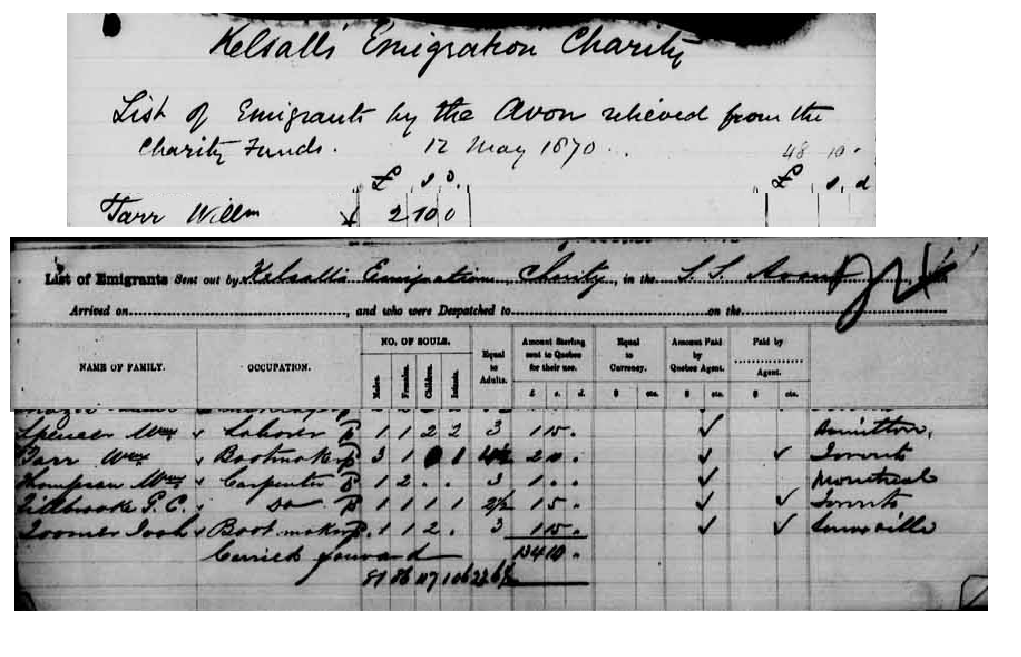 Kelsall's Emigration Charity
List of Emigrants by the Avon relieved from the
Charity Funds. 12 May 1870. 48 10.
£ s d. £ s. d
Tarr Willm 2 10 0
List of Emigrants Sent out by Kelsall's Emigration Charity, in the S.S. Avon
Arrived on , and who were Despatched to on the
NAME OF FAMILY. OCCUPATION. NO. OF SOULS. Equal to Adults. Amount Sterling sent to Quebec for their use. Equal to Currency. Amount Paid by Quebec Agent. Paid by Agent.
Males. Females. Children. Infants. £ s. d. $ cts. $ cts. $ cts.
Spencer Wm Laborer 1 1 2 2 3 1 15. ✓ Hamilton,
Tarr Wm Bootmaker 3 1 1 2 ✓ ✓ Toronto
Thompson Wm Carpenter 1 2 . . 3 1 . . ✓ Montreal
Do 1 1 1 1 2½ 15. ✓ ✓ Toronto
Boot maker 1 1 2 . 3 1 15. ✓ ✓
Carried forward